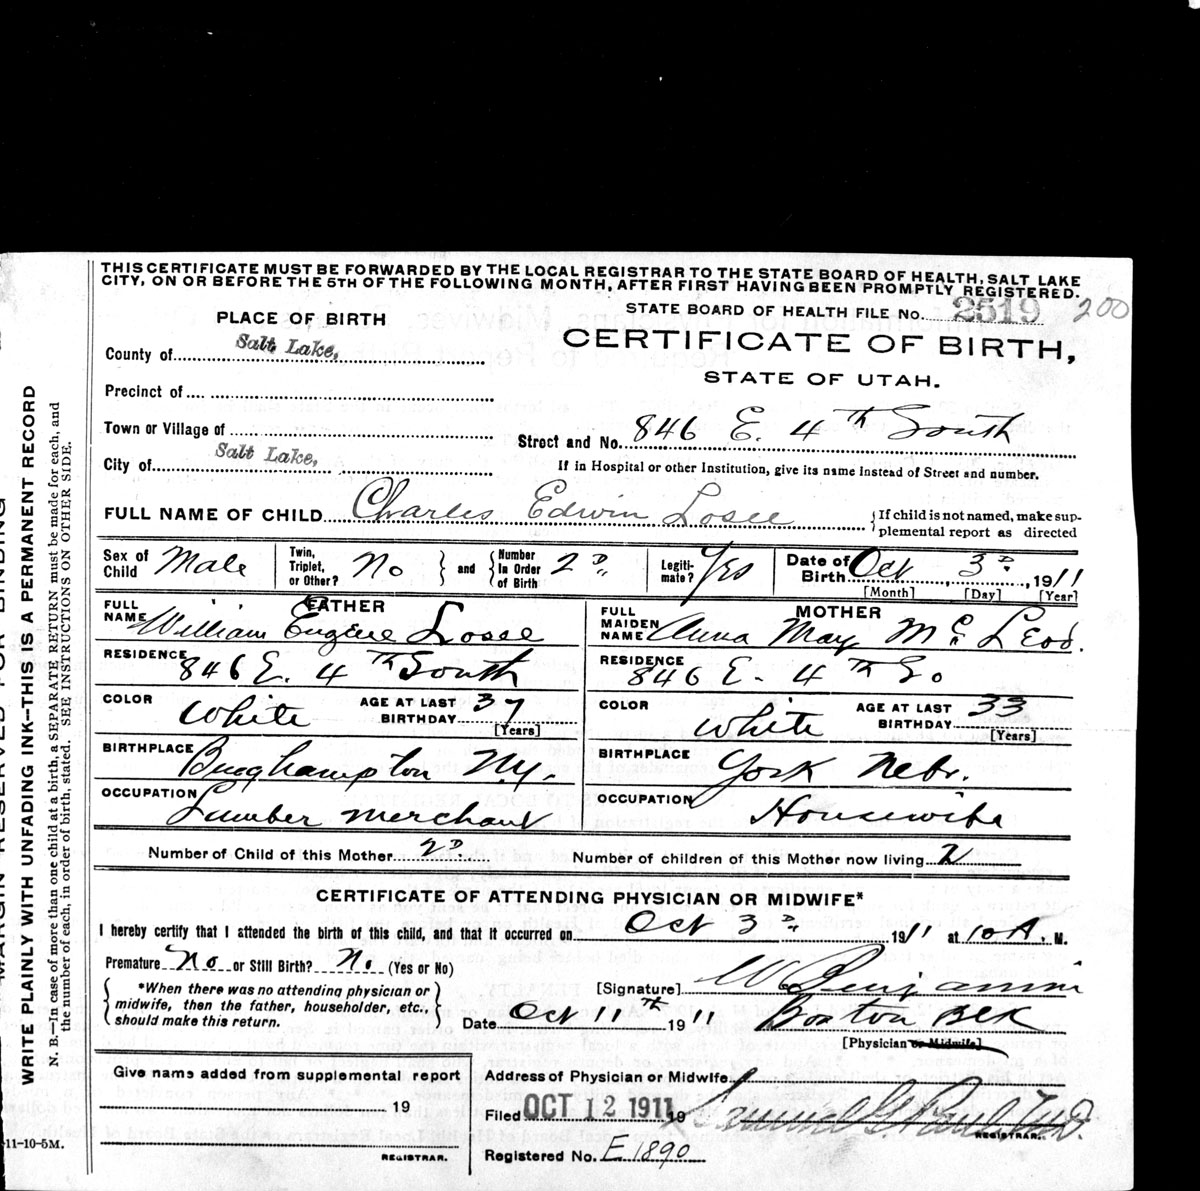 THIS CERTIFICATE MUST BE FORWARDED BY THE LOCAL REGISTRAR TO THE STATE BOARD OF HEALTH, SALT LAKE
CITY, ON OR BEFORE THE 5TH OF THE FOLLOWING MONTH, AFTER FIRST HAVING BEEN PROMPTLY REGISTERED.
STATE BOARD OF HEALTH FILE No. 2519 200
PLACE OF BIRTH
CERTIFICATE OF BIRTH,
STATE OF UTAH.
County of Salt Lake,
Precinct of
Town or Village of
Street and No. 846 E. 4th South
City of Salt Lake,
If in Hospital or other Institution, give its name instead of Street and number.
FULL NAME OF CHILD Charles Edwin Losee
If child is not named, make sup-
plemental report as directed
Sex of Child Male
Twin, Triplet, or Other? No
and Number In Order of Birth 2D
Legiti-mate? Yes
Date of Birth Oct 3D, 1911
[Month] [Day] [Year]
FATHER
FULL NAME William Eugene Losee
RESIDENCE 846 E. 4th South
COLOR White
AGE AT LAST BIRTHDAY 37
[Years]
BIRTHPLACE Binghampton Ny.
OCCUPATION Lumber merchant
MOTHER
FULL MAIDEN NAME Anna May McLeod.
RESIDENCE 846 E. 4th So
COLOR White
AGE AT LAST BIRTHDAY 33
[Years]
BIRTHPLACE York Nebr.
OCCUPATION Housewife
Number of Child of this Mother 2D
Number of children of this Mother now living 2
CERTIFICATE OF ATTENDING PHYSICIAN OR MIDWIFE*
I hereby certify that I attended the birth of this child, and that it occurred on Oct 3D 1911 at 10 A. M.
Premature No or Still Birth? No (Yes or No)
*When there was no attending physician or
midwife, then the father, householder, etc.,
should make this return.
[Signature] Benjamin
Date Oct 11th 1911 Boston Blk
[Physician or Midwife]
Give name added from supplemental report
19
REGISTRAR.
Address of Physician or Midwife
Filed OCT 12 1911 19
REGISTRAR.
Registered No. E 1890
11-10-5M.
MARGIN RESERVED FOR BINDING
WRITE PLAINLY WITH UNFADING INK—THIS IS A PERMANENT RECORD
N. B.—In case of more than one child at a birth, a SEPARATE RETURN must be made for each, and
the number of each, in order of birth, stated. SEE INSTRUCTIONS ON OTHER SIDE.